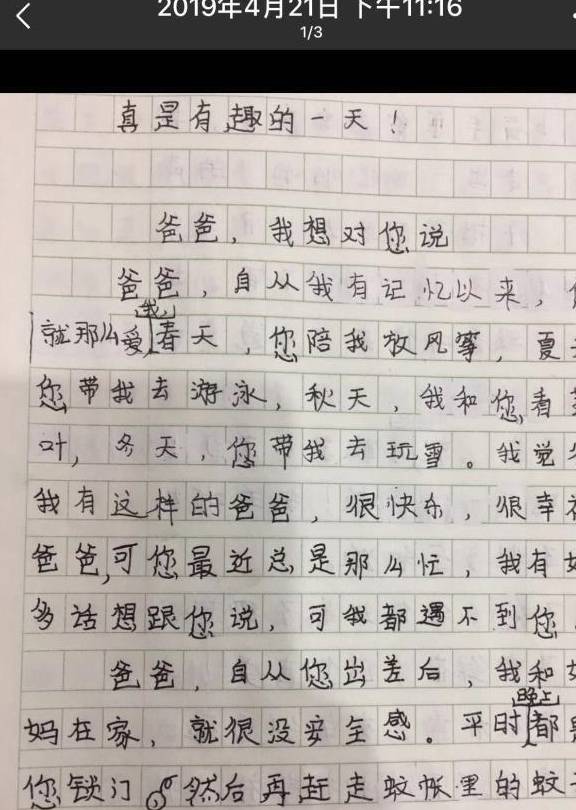 2019年4月21日 下午11:16
1/3
真是有趣的一天！
爸爸，我想对您说
爸爸，自从我有记忆以来，
就那么爱我春天，您陪我放风筝，夏
您带我去游泳，秋天，我和您看
叶，冬天，您带我去玩雪。我觉
我有这样的爸爸，很快乐，很幸
爸爸，可您最近总是那么忙，我有
多话想跟您说，可我都遇不到您
爸爸，自从您出差后，我和
妈在家，就很没安全感。平时晚上都
您锁门，然后再赶走蚊帐里的蚊